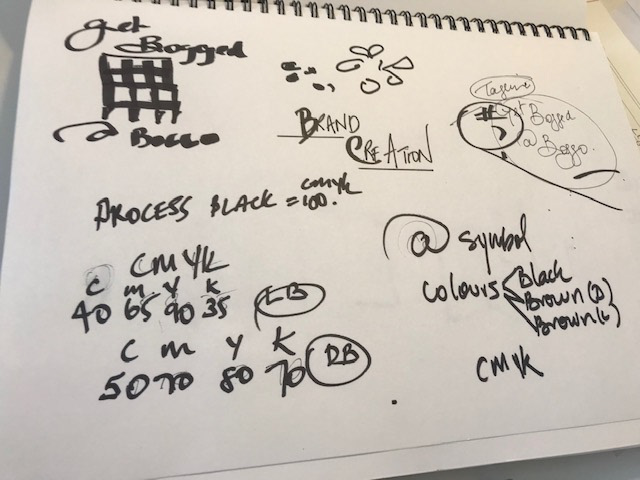 Get
Bogged
@ BOGGO
BRAND
CREATION
Tagline
# get Bogged
@ Boggo.
PROCESS BLACK = CMYK
100.
CMYK
C M Y K
40 65 90 35 LB
C M Y K
50 70 80 70 DB
@ symbol
Colours Black
Brown (D)
Brown (L)
CMYK